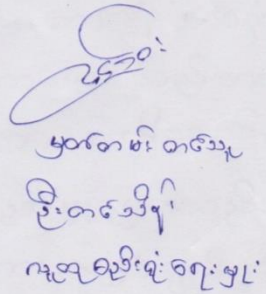 မှတ်တမ်းတင်သူ
ဦးတင်သိန်း
လူထုစည်းရုံးရေးမှူး